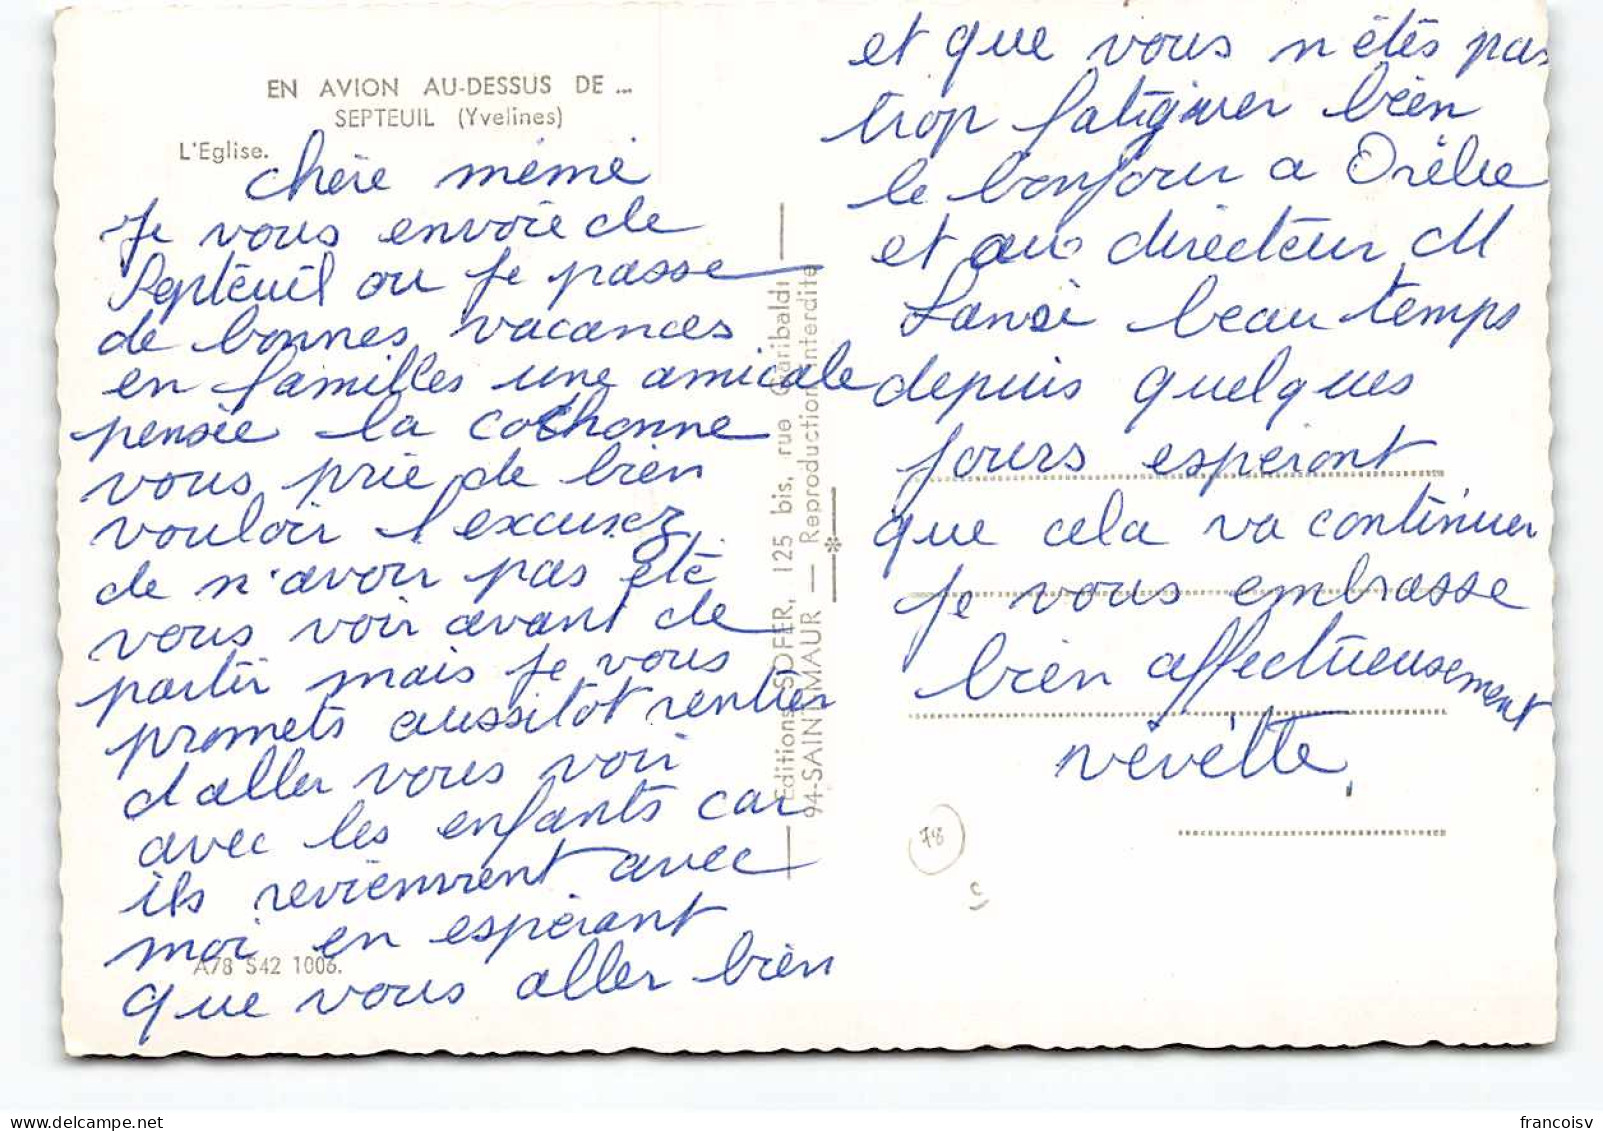 EN AVION AU-DESSUS DE ...
SEPTEUIL (Yvelines)
L'Eglise.
chère mémé
Je vous envoie de
Septeuil ou je passe
de bonnes vacances
en familles une amicale
pensée la cochonne
vous prie de bien
vouloir l'excusez
de n'avoir pas été
vous voir avant de
partir mais je vous
promets aussitot rentrer
d aller vous voir
avec les enfants car
ils reviennent avec
moi en espérant
que vous aller bien
A78 S42 1006.
Editions SOFER, 125 bis, rue Garibaldi
94-SAINT-MAUR — Reproduction interdite
et que vous n étés pas
trop fatiguer bien
le bonjour a
et au directeur M
beau temps
depuis quelques
jours espéront
que cela va continuer
Je vous embrasse
bien affectueusement
vévétte.
78
francoisv